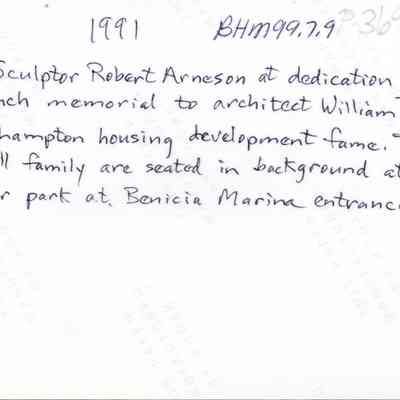 1991 BHM99.7.9 P369
Sculptor Robert Arneson at dedication
nch memorial to architect William T
hampton housing development fame.
ll family are seated in background at
r park at Benicia Marina entrance